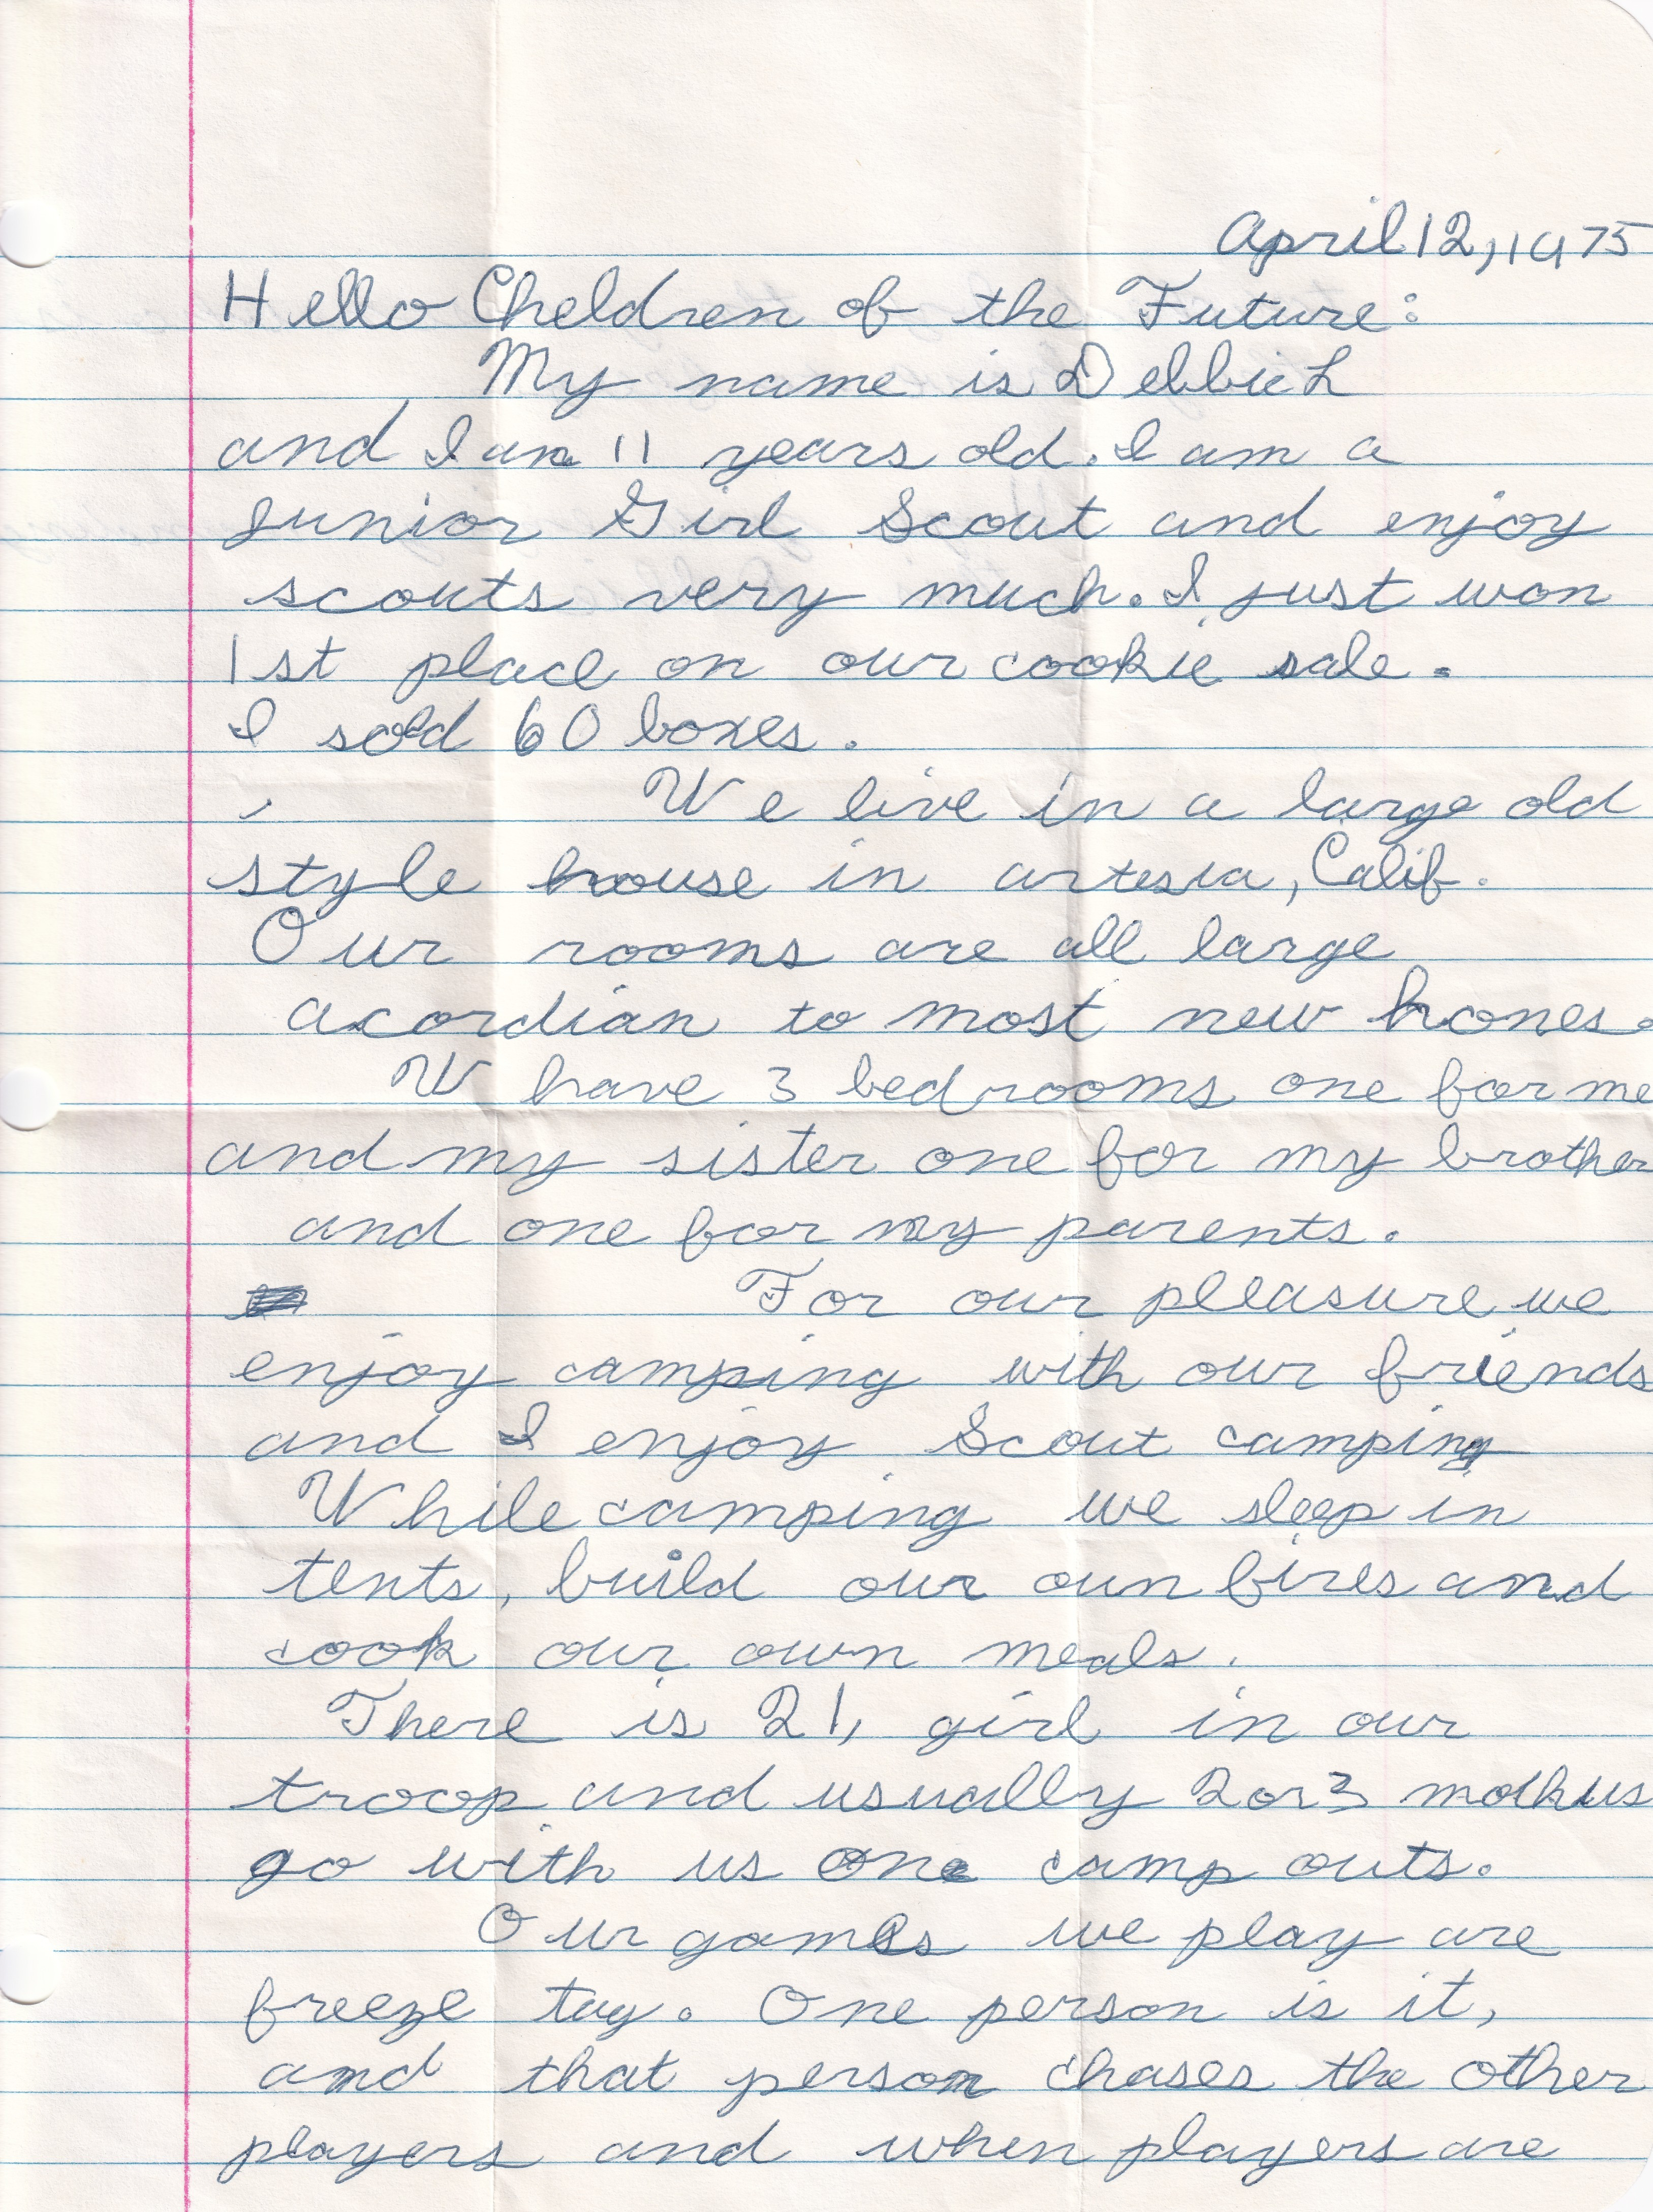 April 12, 1975
Hello Cheldren of the Future:
My name is Debbie L
and I am 11 years old. I am a
junior Girl Scout and enjoy
scouts very much. I just won
1st place on our cookie sale.
I sold 60 boxes.
We live in a large old
style house in artesia, Calif.
Our rooms are all large
acordian to most new homes.
W have 3 bedrooms one for me
and my sister one for my brother
and one for my parents.
For our pleasure we
enjoy camping with our friends
and I enjoy Scout camping
While camping we sleep in
tents, build our oun fires and
cook our own meals.
There is 21, girl in our
troop and usually 2 or 3 mothers
go with us one camp outs.
Our games we play are
freeze tag. One person is it,
and that person chases the other
players and when players are